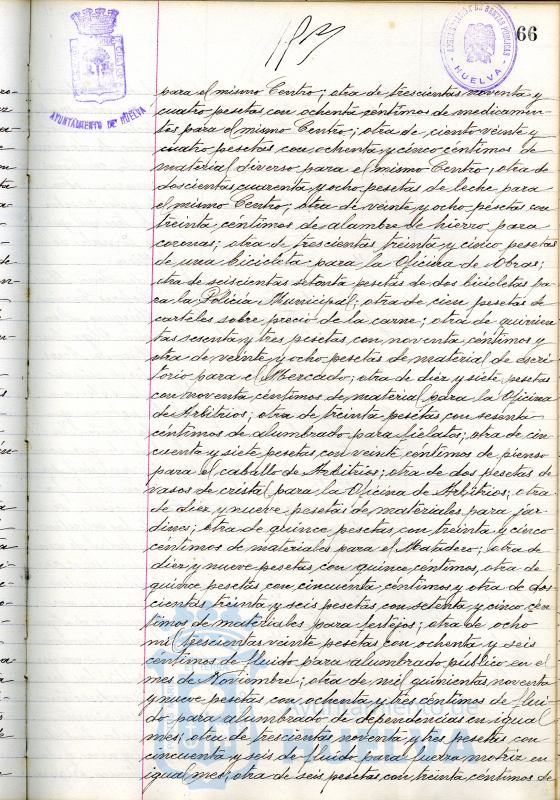 66
AYUNTAMIENTO DE HUELVA
ADMINISTRACION DE RENTAS PUBLICAS
HUELVA
para el mismo Centro; otra de trescientas noventa y
cuatro pesetas con ochenta céntimos de medicamen-
tos para el mismo Centro; otra de ciento veinte y
cuatro pesetas con ochenta y cinco céntimos de
material diverso para el mismo Centro; otra de
doscientas cuarenta y ocho pesetas de leche para
el mismo Centro; otra de veinte y ocho pesetas con
treinta céntimos de alambre de hierro para
coronas; otra de trescientas treinta y cinco pesetas
de una bicicleta para la Oficina de Obras;
otra de seiscientas setenta pesetas de dos bicicletas pa-
ra la Policía Municipal; otra de cien pesetas de
carteles sobre precio de la carne; otra de quinien
tas sesenta y tres pesetas con noventa céntimos y
otra de veinte y ocho pesetas de material de escri-
torio para el Mercado; otra de diez y siete pesetas
con noventa céntimos de material para la Oficina
de Arbitrios; otra de treinta pesetas con sesenta
céntimos de alumbrado para fielatos; otra de cin
cuenta y siete pesetas con veinte céntimos de pienso
para el caballo de Arbitrios; otra de dos pesetas de
vasos de cristal para la Oficina de Arbitrios; otra
de diez y nueve pesetas de materiales para jar-
dines; otra de quince pesetas con treinta y cinco
céntimos de materiales para el Matadero; otra de
diez y nueve pesetas con quince céntimos, otra de
quince pesetas con cincuenta céntimos y otra de dos
cientas treinta y seis pesetas con setenta y cinco cén
timos de materiales para festejos; otra de ocho
mil trescientas veinte pesetas con ochenta y seis
céntimos de fluido para alumbrado público en el
mes de Noviembre; otra de mil quinientas noventa
y nueve pesetas con ochenta y tres céntimos de flui
do para alumbrado de dependencias en igual
mes; otra de trescientas noventa y tres pesetas con
cincuenta y seis de fluido para fuerza motriz en
igual mes; otra de seis pesetas con treinta céntimos de
Ayuntamiento de
HUELVA